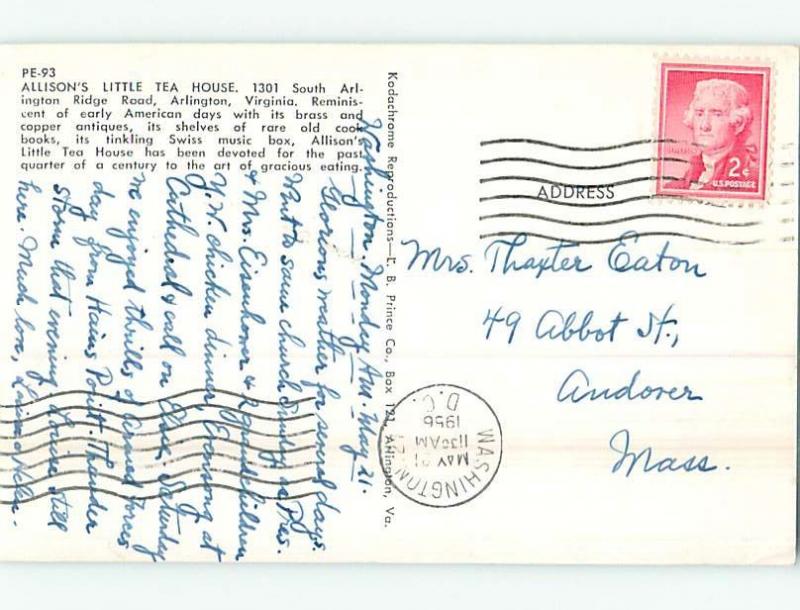 PE-93
ALLISON'S LITTLE TEA HOUSE. 1301 South Arl-
ington Ridge Road, Arlington, Virginia. Reminis-
cent of early American days with its brass and
copper antiques, its shelves of rare old cook
books, its tinkling Swiss music box, Allison's
Little Tea House has been devoted for the past
quarter of a century to the art of gracious eating.
Washington. Monday A.M. May 21.
Glorious weather for several days.
Went to same church Sunday as Pres.
& Mrs. Eisenhower & 2 grandchildren
Y.W. chicken dinner, Evensong at
Cathedral & call on Saturday
we enjoyed thrills of Armed Forces
day from Hains Point. Thunder
storm that evening. Louise still
here. Much love,
Kodachrome Reproductions—E. B. Prince Co., Box 121, Arlington, Va.
2¢
U.S. POSTAGE
ADDRESS
Mrs. Thaxter Eaton
49 Abbot St.,
Andover
Mass.
WASHINGTON
MAY 21
1130 AM
1956
D.C.